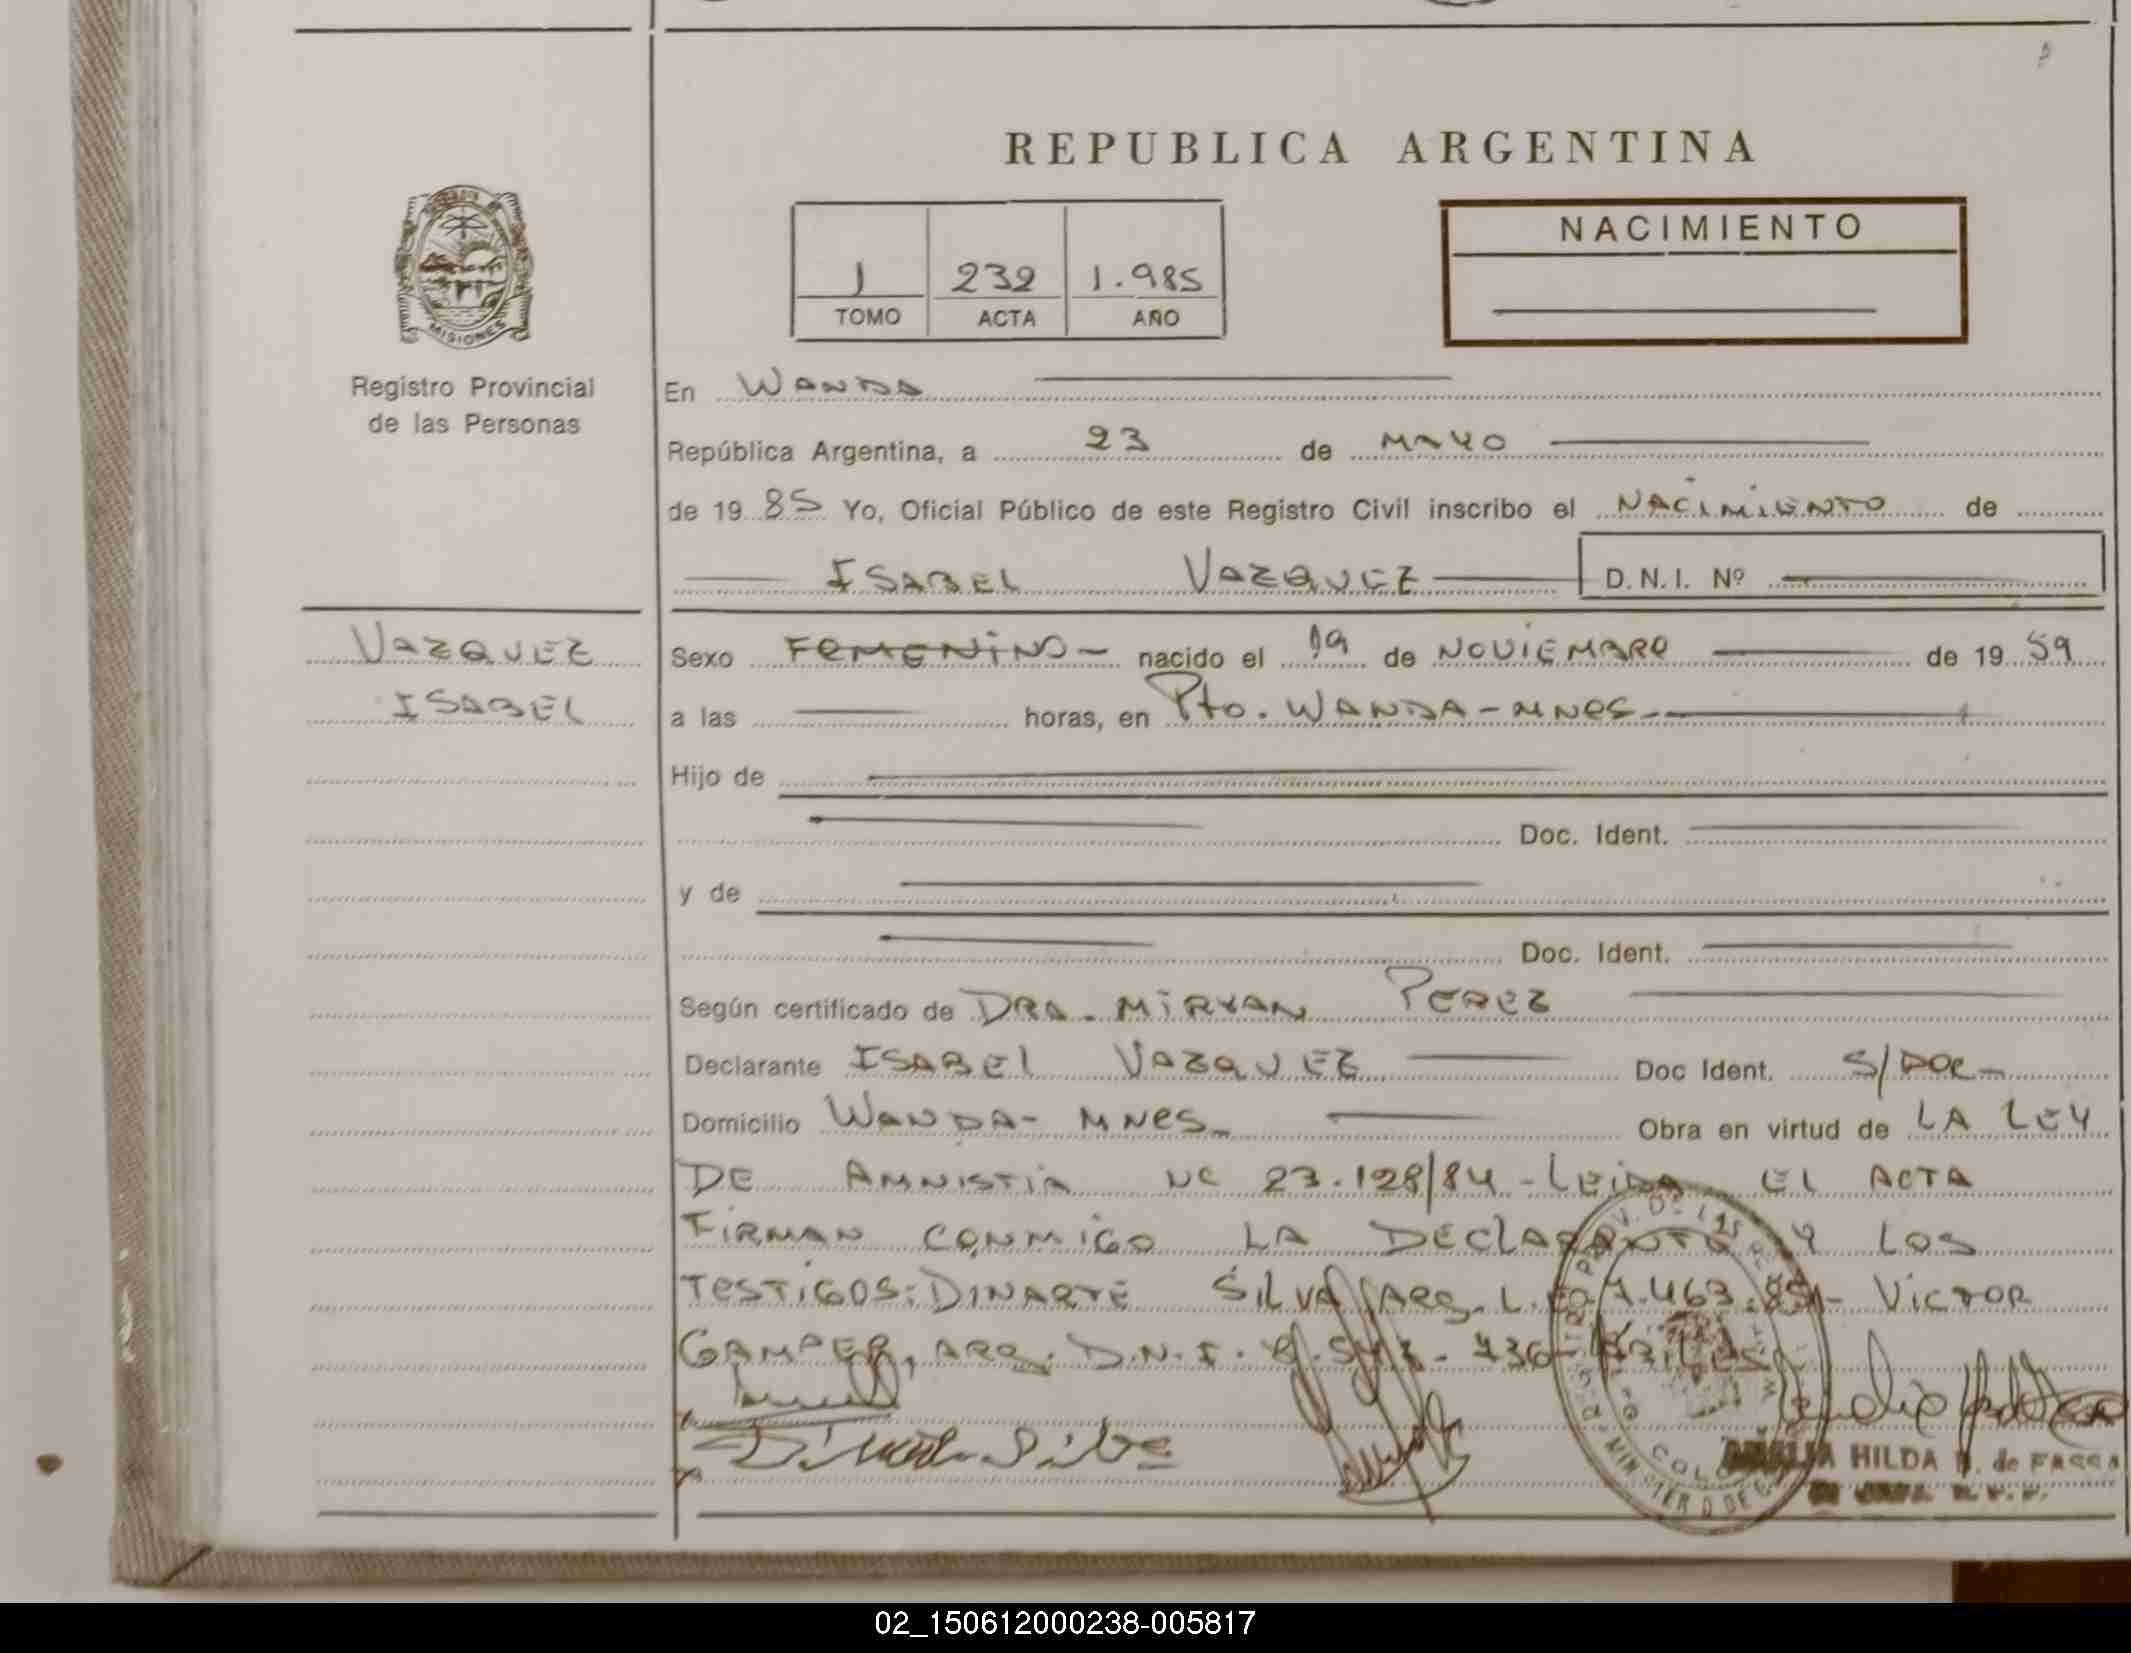 REPUBLICA ARGENTINA
1 232 1.985
TOMO ACTA AÑO
NACIMIENTO
MISIONES
Registro Provincial
de las Personas
En WANDA
República Argentina, a 23 de MAYO
de 19 85 Yo, Oficial Público de este Registro Civil inscribo el NACIMIENTO de
ISABEL VAZQUEZ D.N.I. Nº
VAZQUEZ
ISABEL
Sexo FEMENINO - nacido el 19 de NOVIEMBRE de 19 59
a las horas, en Pto. WANDA - MNES -
Hijo de
Doc. Ident.
y de
Doc. Ident.
Según certificado de DRA. MIRYAN PEREZ
Declarante ISABEL VAZQUEZ Doc Ident. S/DOC -
Domicilio WANDA - MNES - Obra en virtud de LA LEY
DE AMNISTIA Nº 23.128/84 - LEIDA EL ACTA
FIRMAN CONMIGO LA DECLARANTE Y LOS
TESTIGOS: DINARTE SILVA, ARG. L.E. 7.463. VICTOR
GAMPER, ARG. D.N.I.
Dinarte Silva
HILDA de
02_150612000238-005817